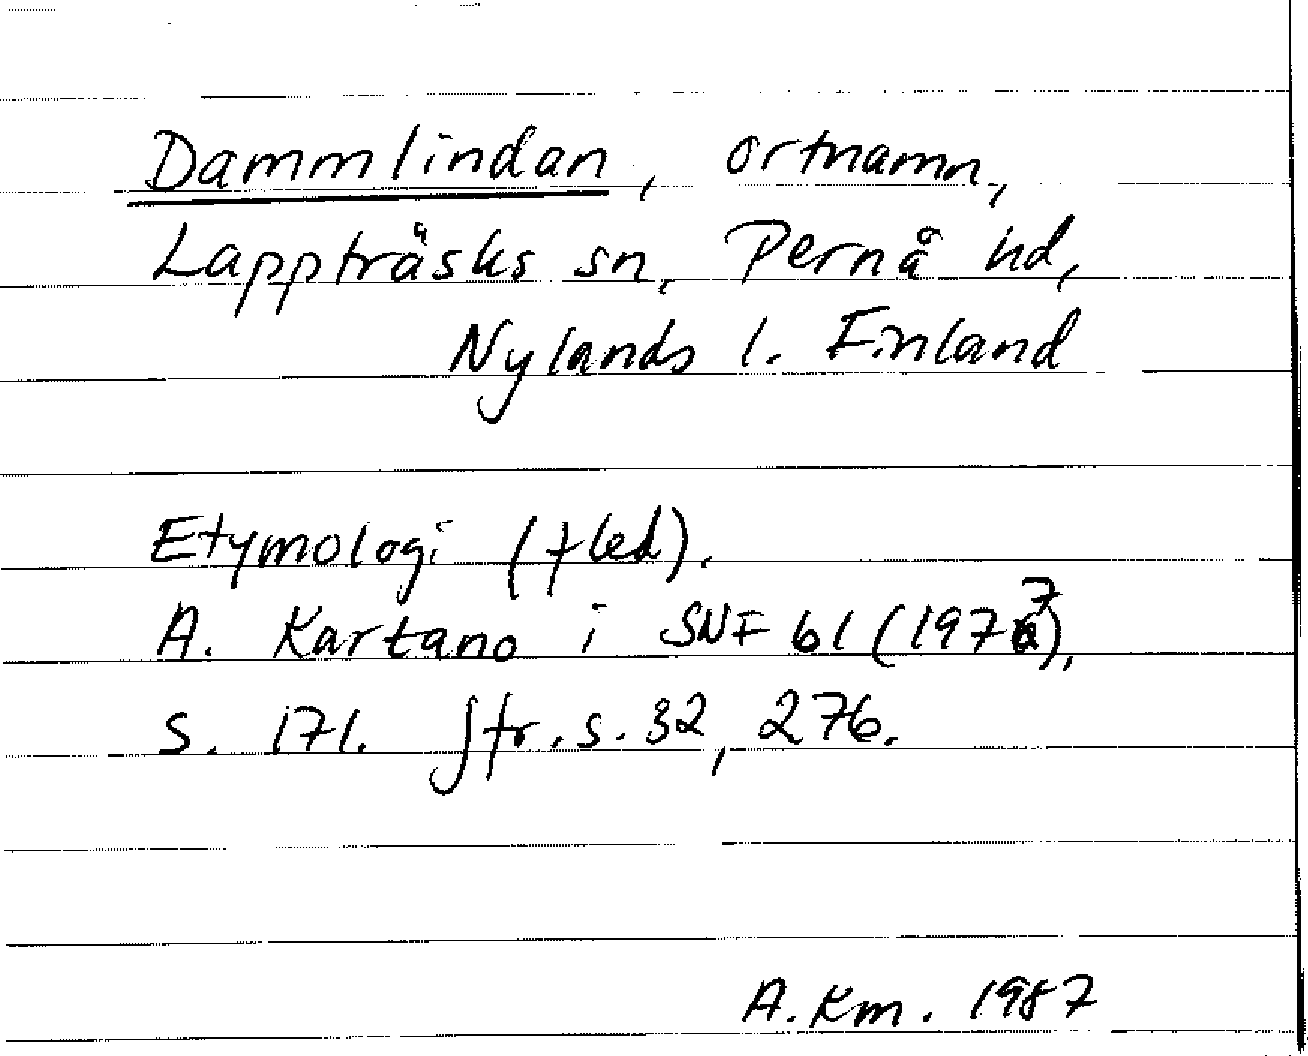 Dammlindan, ortnamn,
Lappträsks sn, Pernå hd,
Nylands l. Finland
Etymologi (fled).
A. Kartano i SNF 61 (1977),
s. 171. Jfr. s. 32, 276.
A. Km. 1987